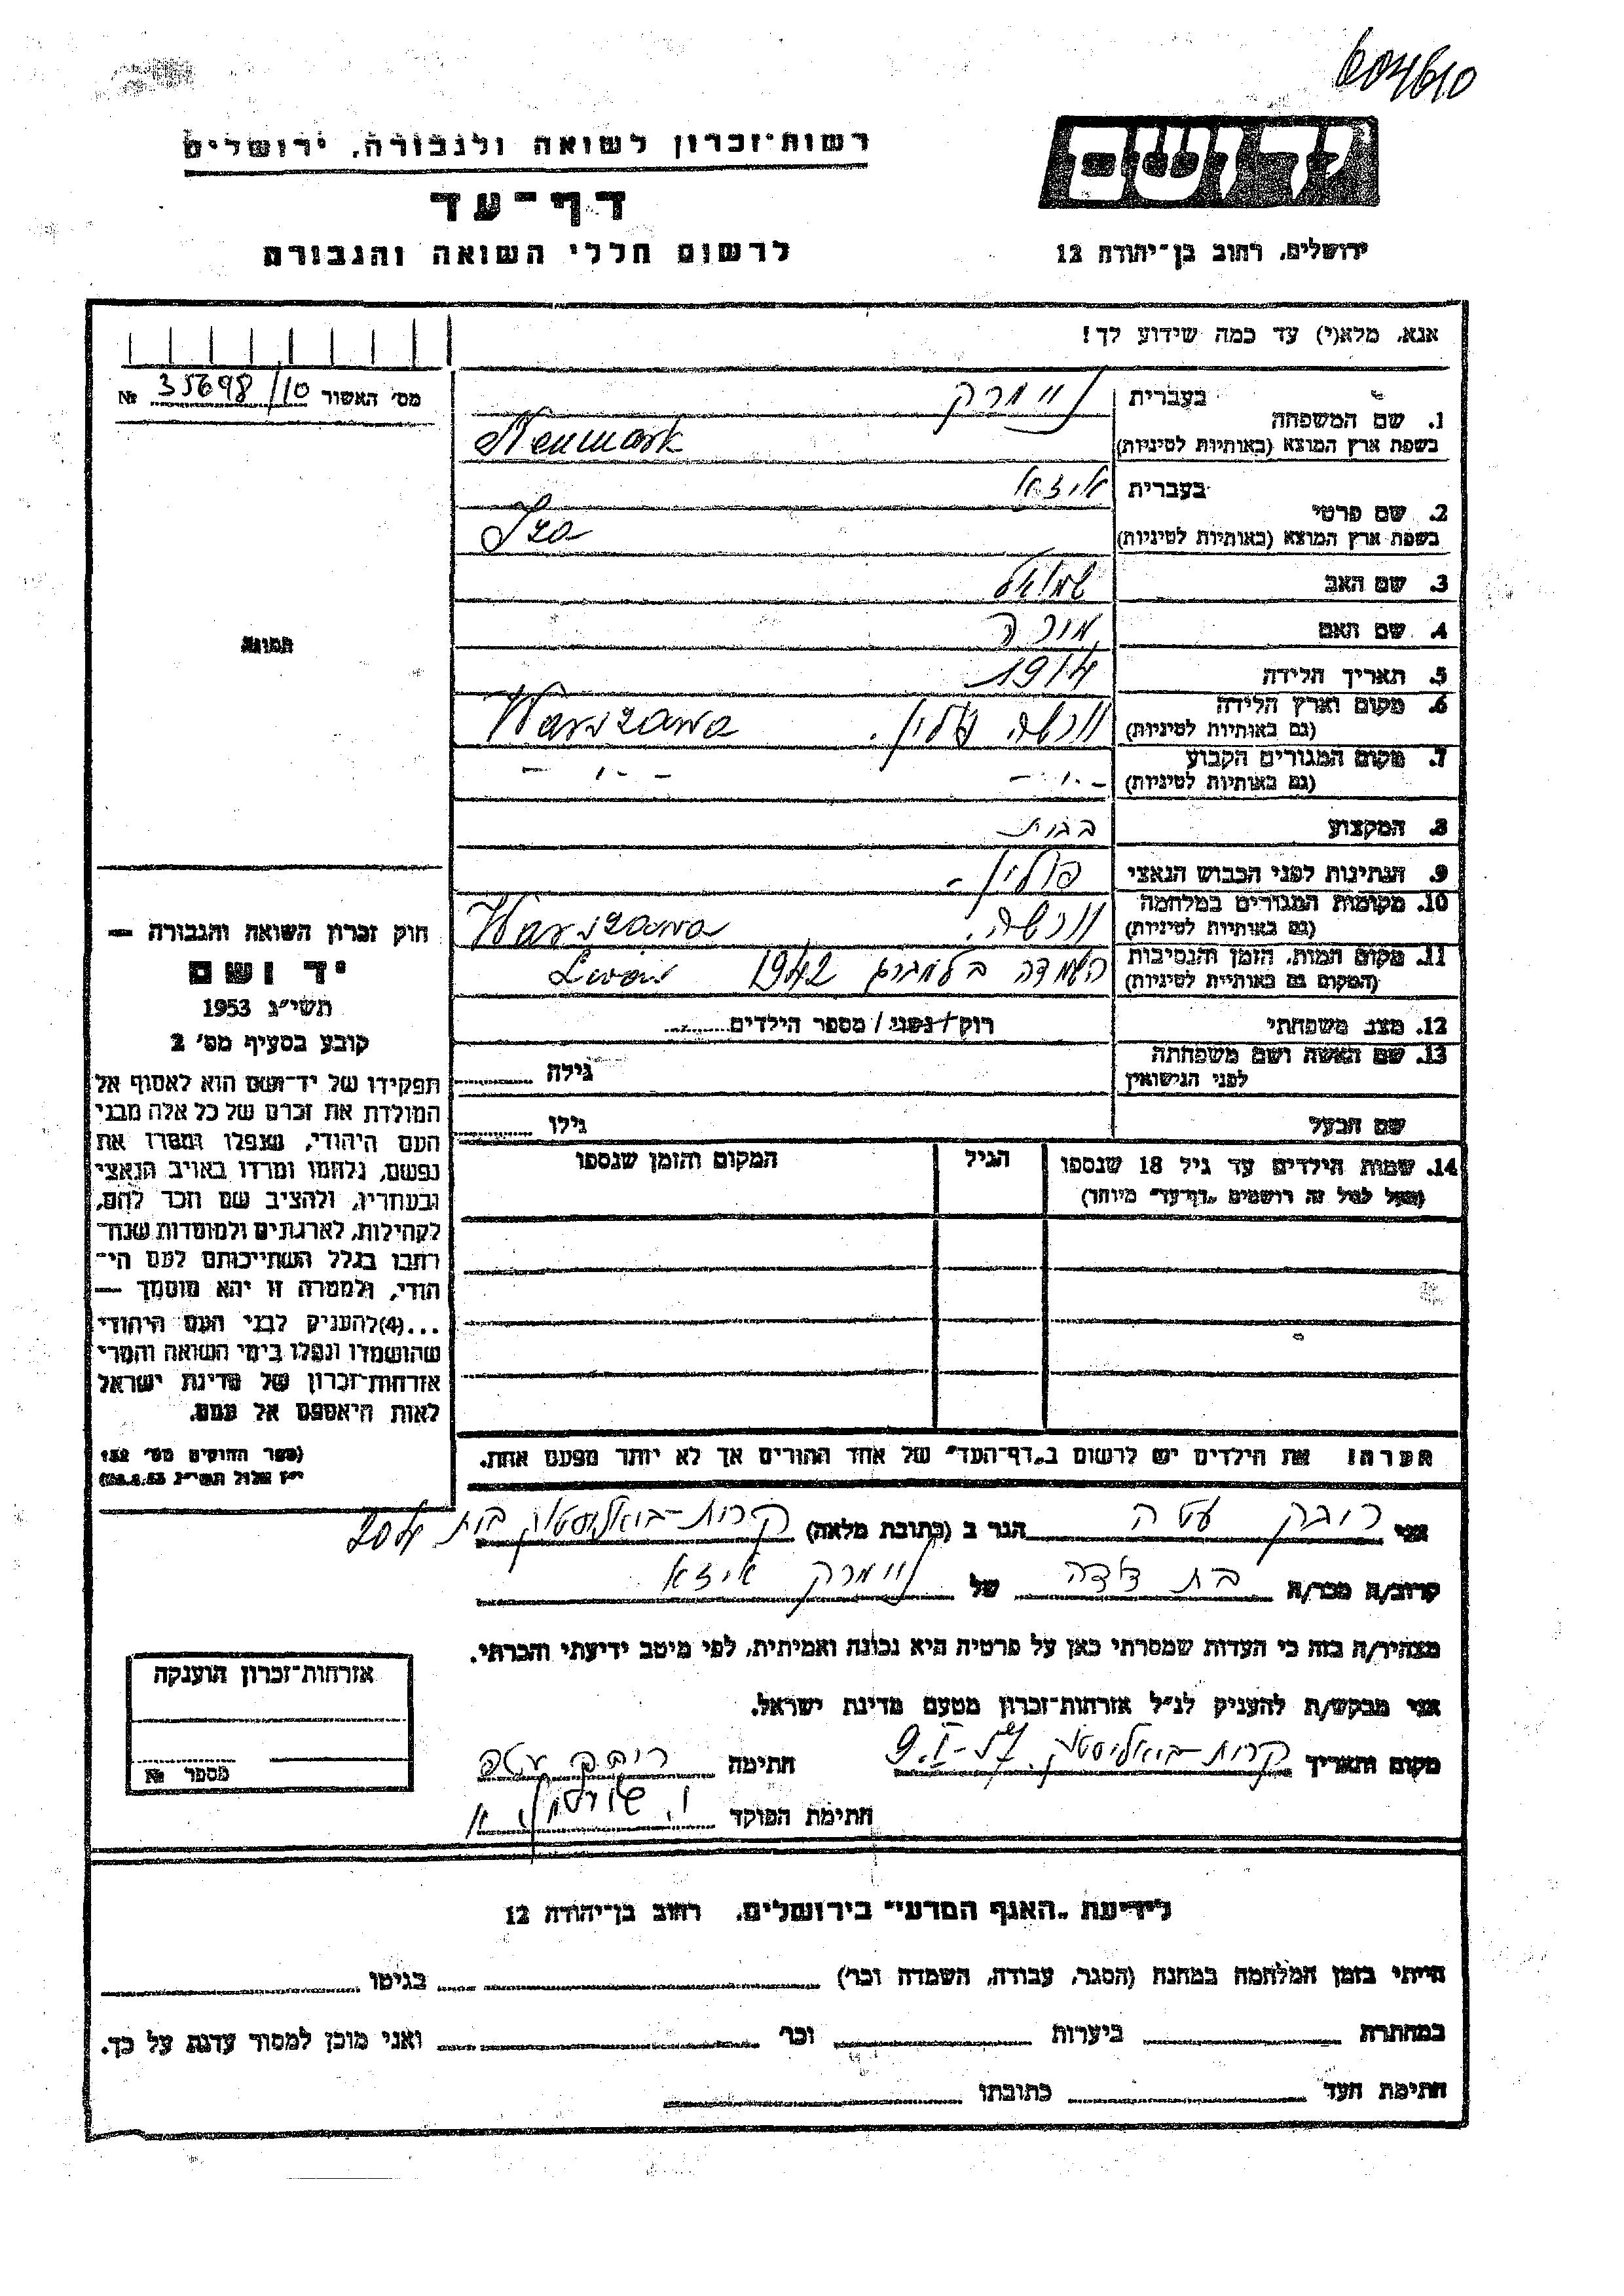 604610
יד ושם
רשות-זכרון לשואה ולגבורה, ירושלים
דף-עד
לרשום חללי השואה והגבורה
ירושלים, רחוב בן-יהודה 12
אנא, מלא(י) עד כמה שידוע לך!
מס' האשור 35698/10 №
1. שם המשפחה
בעברית ניימרק
בשפת ארץ המוצא (באותיות לטיניות) Neumark
2. שם פרטי
בעברית איזא
בשפת ארץ המוצא (באותיות לטיניות) Iza
3. שם האב שמואל
4. שם האם
5. תאריך הלידה 1914
6. מקום וארץ הלידה
(גם באותיות לטיניות) ורשה פולין. Warszawa
7. מקום המגורים הקבוע
(גם באותיות לטיניות) - " - - " -
8. המקצוע
9. הנתינות לפני הכבוש הנאצי פולין -
10. מקומות המגורים במלחמה
(גם באותיות לטיניות) ורשה. Warszawa
11. מקום המות, הזמן והנסיבות
(המקום גם באותיות לטיניות) 1942 Lwów
12. מצב משפחתי רוק/נשוי/ מספר הילדים
13. שם האשה ושם משפחתה
לפני הנישואין גילה
שם הבעל גילו
14. שמות הילדים עד גיל 18 שנספו הגיל המקום והזמן שנספו
(מעל לגיל זה רושמים „דף-עד" מיוחד)
הערה: את הילדים יש לרשום ב„דף-העד" של אחד ההורים אך לא יותר מפעם אחת.
תמונה
חוק זכרון השואה והגבורה —
יד ושם
תשי"ג 1953
קובע בסעיף מס' 2
תפקידו של יד-ושם הוא לאסוף אל
המולדת את זכרם של כל אלה מבני
העם היהודי, שנפלו ומסרו את
נפשם, נלחמו ומרדו באויב הנאצי
ובעוזריו, ולהציב שם וזכר להם,
לקהילות, לארגונים ולמוסדות שנח-
רבו בגלל השתייכותם לעם הי-
הודי, ולמטרה זו יהא מוסמך —
...(4)להעניק לבני העם היהודי
שהושמדו ונפלו בימי השואה והמרי
אזרחות-זכרון של מדינת ישראל
לאות היאספם אל עמם.
(ספר החוקים מס' 132
י"ז אלול תשי"ג 28.8.53)
אני עטה הגר ב (כתובת מלאה) קרית-ביאליסטוק בית 204
קרוב/ה מכר/ה בת דודה של ניימרק איזא
מצהיר/ה בזה כי העדות שמסרתי כאן על פרטיה היא נכונה ואמיתית, לפי מיטב ידיעתי והכרתי.
אני מבקש/ת להעניק לנ"ל אזרחות-זכרון מטעם מדינת ישראל.
מקום ותאריך קרית-ביאליסטוק. חתימה
חתימת הפוקד
אזרחות-זכרון הוענקה
מספר №
לידיעת „האגף המדעי" בירושלים, רחוב בן-יהודה 12
הייתי בזמן המלחמה במחנה (הסגר, עבודה, השמדה וכו') בגיטו
במחתרת ביערות וכו' ואני מוכן למסור עדות על כך.
חתימת העד כתובתו